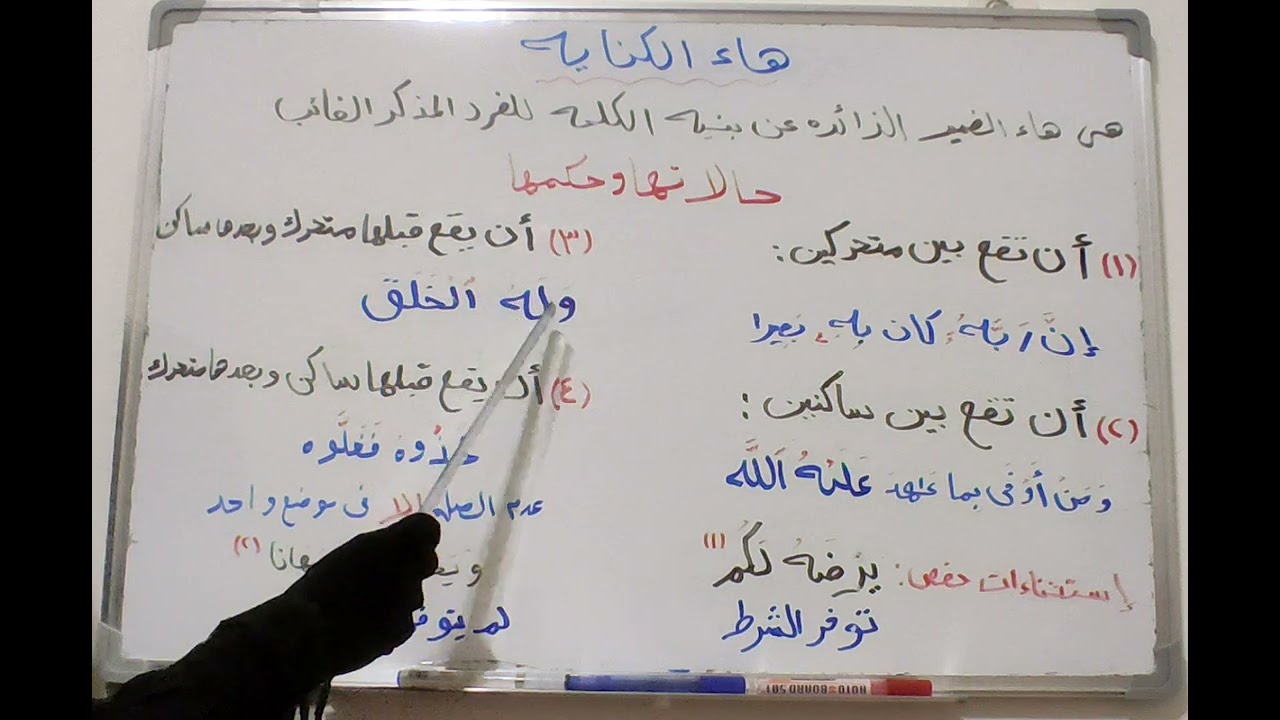 هاء الكنايه
هى هاء الضمير الزائده عن بنيه الكلمه للفرد المذكر الغائب
حالاتها وحكمها
(١) أن تقع بين متحركين:
إنَّ رَبَّهُۥ كان بِهِۦ بَصِيرا
(٢) أن تقع بين ساكنين:
وَمَنْ أَوْفَى بما عَاهَدَ عَلَيْهُ ٱللَّه
إستثناءات حفص: يَرْضَهُ لَكُم (١)
توفر الشرط
(٣) أن يقع قبلها متحرك وبعدها ساكن
وَلَهُ ٱلْخَلْق
(٤) أن يقع قبلها ساكن وبعدها متحرك
خُذُوهُ فَغُلُّوه
عدم الصله إلا فى موضع واحد
(٢)
لم يتوفر
BOARD 501